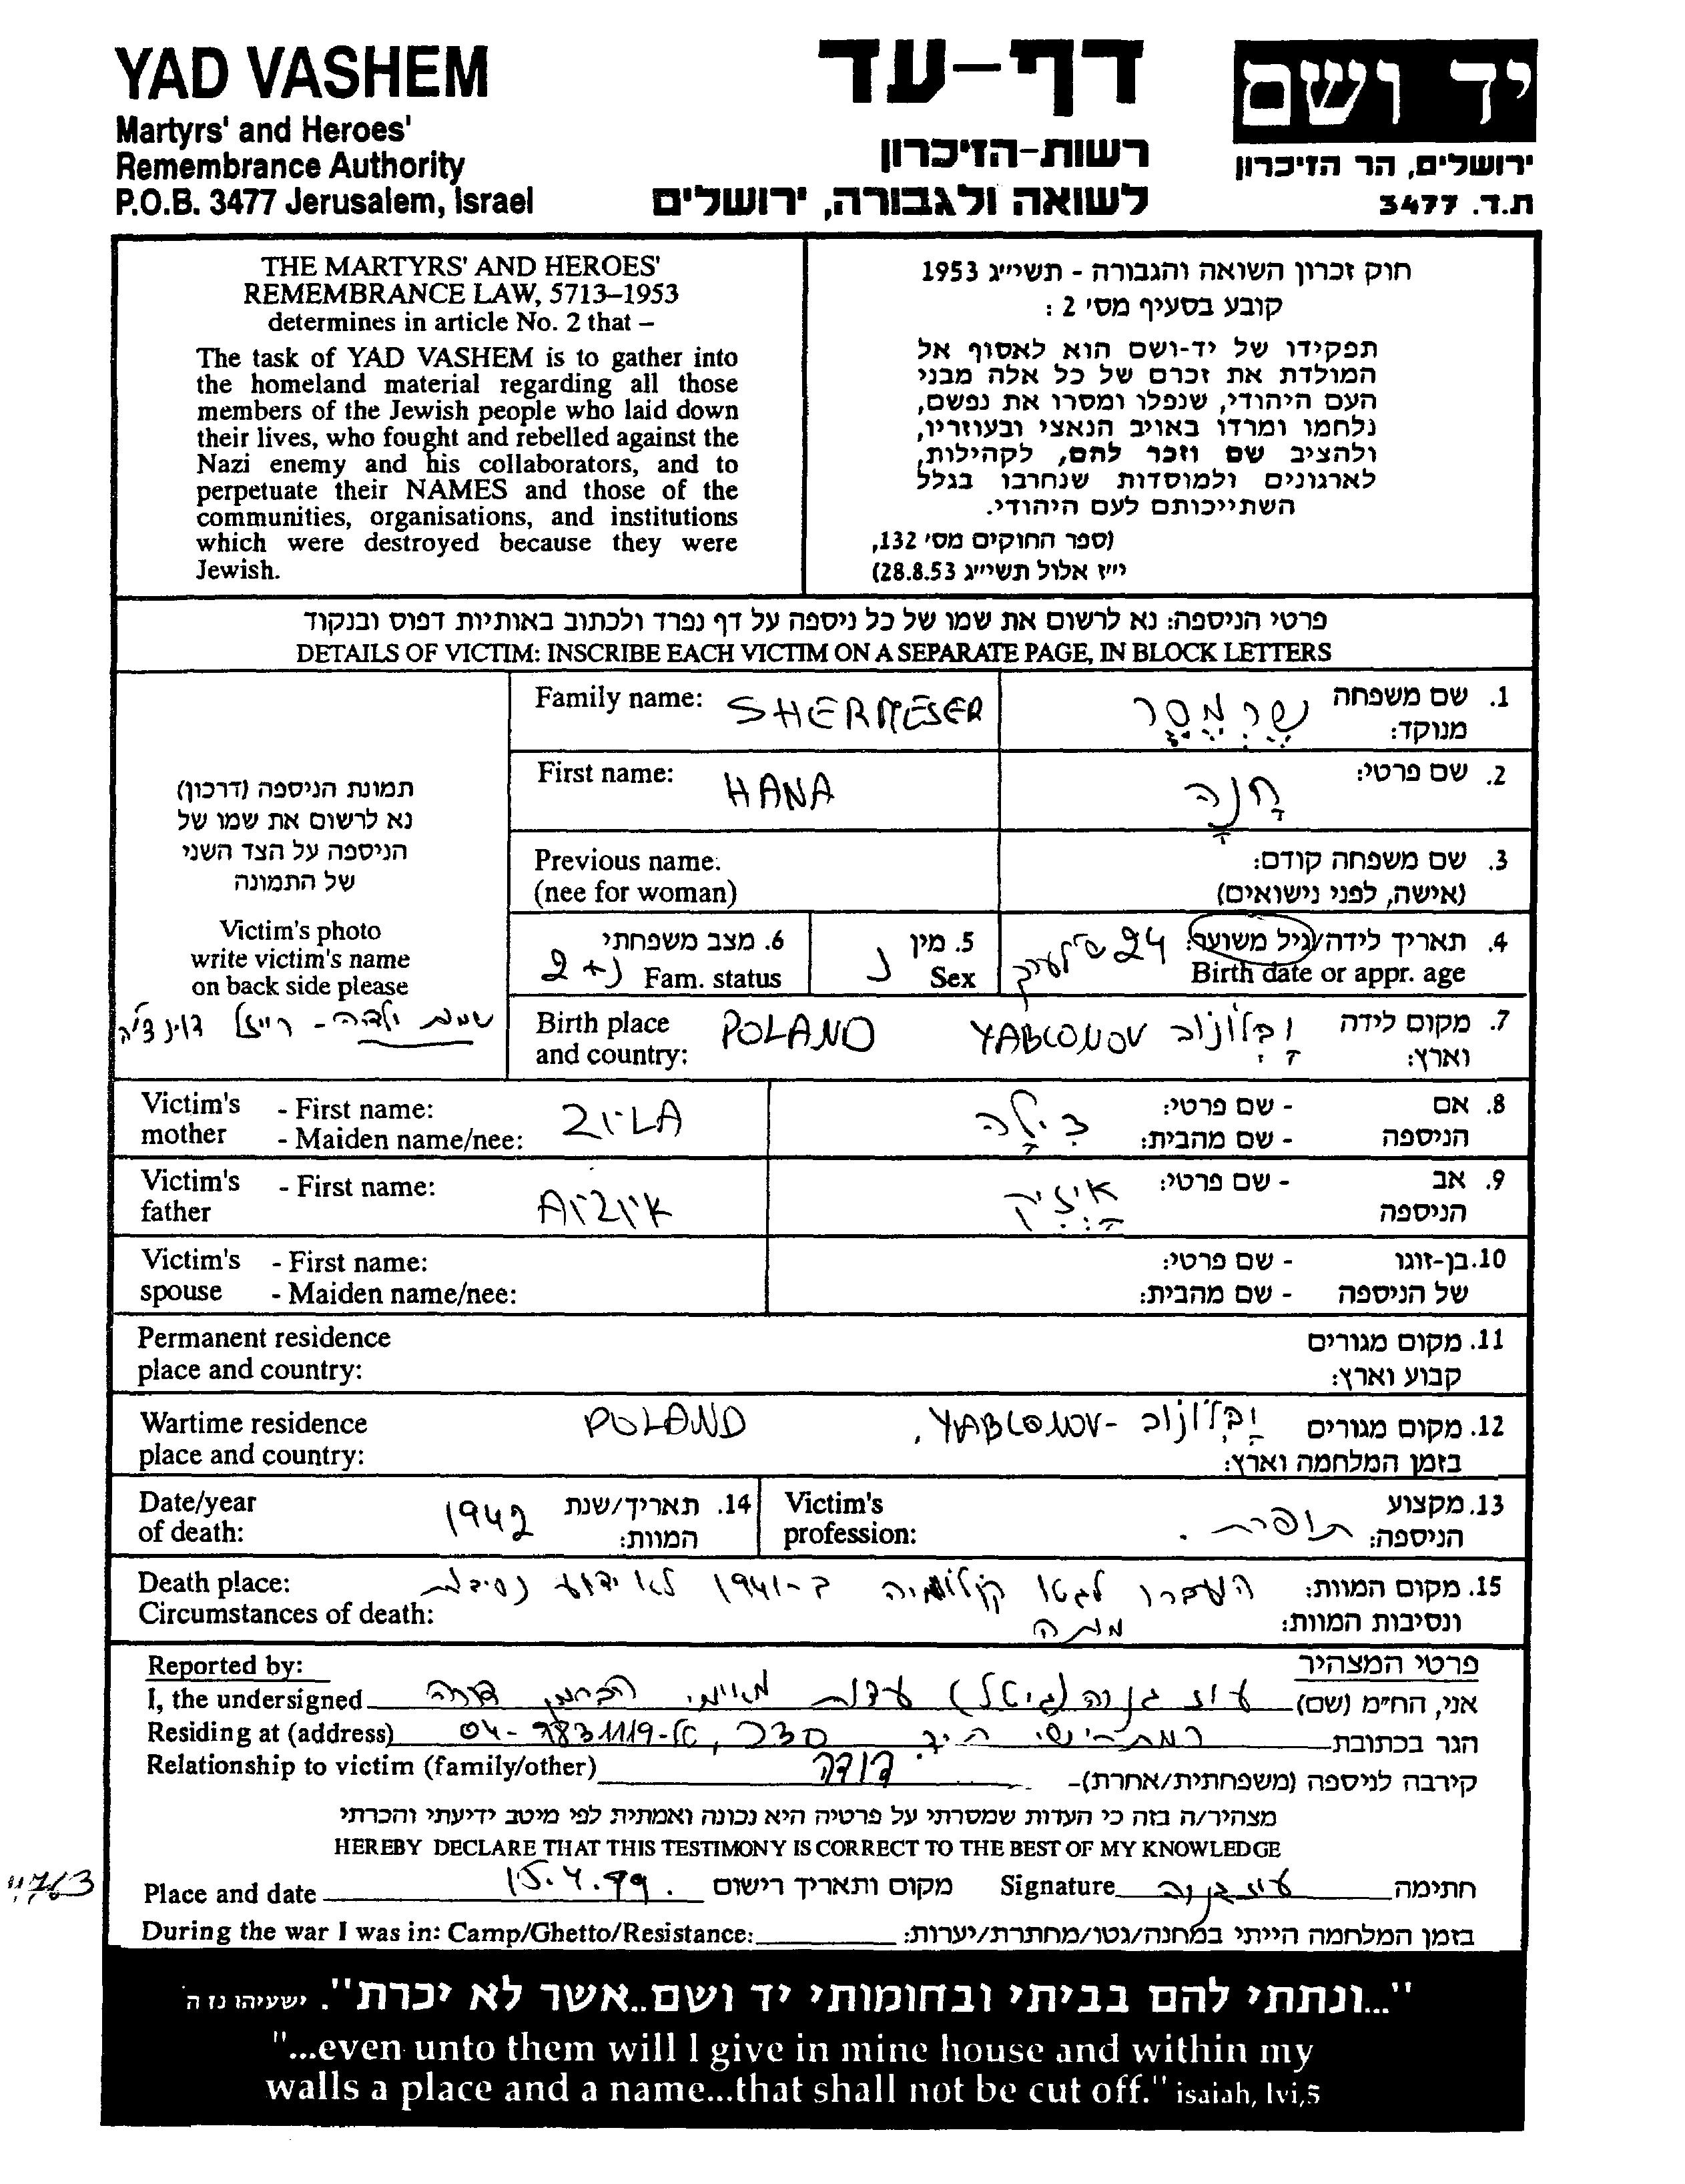 YAD VASHEM
Martyrs' and Heroes'
Remembrance Authority
P.O.B. 3477 Jerusalem, Israel
דף-עד
רשות-הזיכרון
לשואה ולגבורה, ירושלים
יד ושם
ירושלים, הר הזיכרון
ת.ד. 3477
THE MARTYRS' AND HEROES'
REMEMBRANCE LAW, 5713–1953
determines in article No. 2 that –
The task of YAD VASHEM is to gather into
the homeland material regarding all those
members of the Jewish people who laid down
their lives, who fought and rebelled against the
Nazi enemy and his collaborators, and to
perpetuate their NAMES and those of the
communities, organisations, and institutions
which were destroyed because they were
Jewish.
חוק זכרון השואה והגבורה - תשי״ג 1953
קובע בסעיף מס' 2 :
תפקידו של יד-ושם הוא לאסוף אל
המולדת את זכרם של כל אלה מבני
העם היהודי, שנפלו ומסרו את נפשם,
נלחמו ומרדו באויב הנאצי ובעוזריו,
ולהציב שם וזכר להם, לקהילות,
לארגונים ולמוסדות שנחרבו בגלל
השתייכותם לעם היהודי.
(ספר החוקים מס' 132,
י״ז אלול תשי״ג 28.8.53)
פרטי הניספה: נא לרשום את שמו של כל ניספה על דף נפרד ולכתוב באותיות דפוס ובנקוד
DETAILS OF VICTIM: INSCRIBE EACH VICTIM ON A SEPARATE PAGE, IN BLOCK LETTERS
תמונת הניספה (דרכון)
נא לרשום את שמו של
הניספה על הצד השני
של התמונה
Victim's photo
write victim's name
on back side please
Family name: SHERMESER שֶרְמֶסֶר 1. שם משפחה
מנוקד:
First name: HANA חַנָה 2. שם פרטי:
Previous name. 3. שם משפחה קודם:
(nee for woman) (אישה, לפני נישואים)
6. מצב משפחתי 5. מין 4. תאריך לידה/גיל משוער: 24
2+נ Fam. status נ Sex Birth date or appr. age
Birth place POLAND YABLONOV יַבְּלוֹנוֹב 7. מקום לידה
and country: וארץ:
Victim's - First name: ZILA צִילָה - שם פרטי: 8. אם
mother - Maiden name/nee: - שם מהבית: הניספה
Victim's - First name: אייזיק - שם פרטי: 9. אב
father הניספה
Victim's - First name: - שם פרטי: 10. בן-זוגו
spouse - Maiden name/nee: - שם מהבית: של הניספה
Permanent residence 11. מקום מגורים
place and country: קבוע וארץ:
Wartime residence POLAND , YABLONOV - יבלונוב 12. מקום מגורים
place and country: בזמן המלחמה וארץ:
Date/year 1942 14. תאריך/שנת Victim's תופרת . 13. מקצוע
of death: המוות: profession: הניספה:
Death place: העברו לגטו קולומיה ב-1941 לא ידוע נסיבות 15. מקום המוות:
Circumstances of death: מותה ונסיבות המוות:
Reported by: פרטי המצהיר
I, the undersigned עוז גנוה (גיטל) אני, הח״מ (שם)
Residing at (address) רמת-ישי 04-9831119 הגר בכתובת
Relationship to victim (family/other) דודה קירבה לניספה (משפחתית/אחרת)-
מצהיר/ה בזה כי העדות שמסרתי על פרטיה היא נכונה ואמתית לפי מיטב ידיעתי והכרתי
HEREBY DECLARE THAT THIS TESTIMONY IS CORRECT TO THE BEST OF MY KNOWLEDGE
Place and date 15.4.99. מקום ותאריך רישום Signature חתימה
During the war I was in: Camp/Ghetto/Resistance: בזמן המלחמה הייתי במחנה/גטו/מחתרת/יערות:
"...ונתתי להם בביתי ובחומותי יד ושם..אשר לא יכרת". ישעיהו נז ה
"...even unto them will I give in mine house and within my
walls a place and a name...that shall not be cut off." isaiah, lvi,5